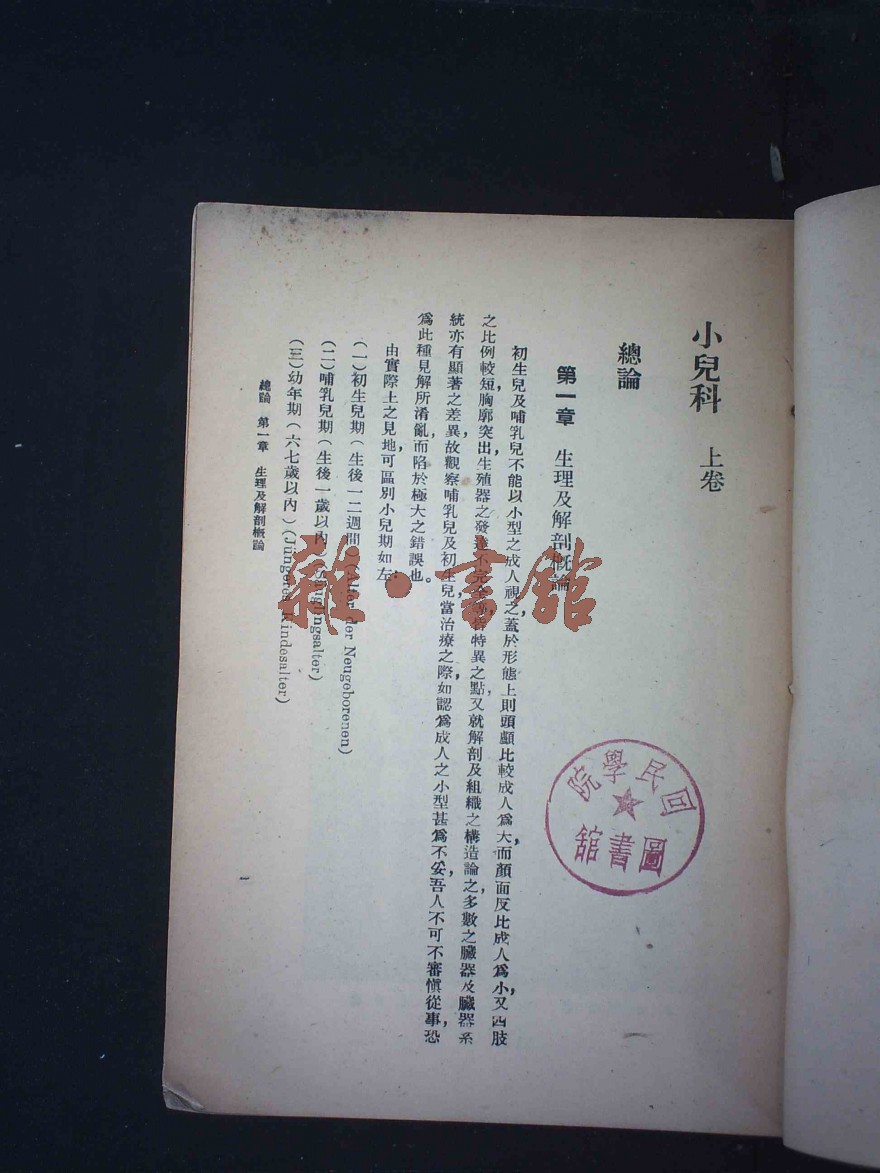 小兒科 上卷
總論
第一章 生理及解剖概論
初生兒及哺乳兒不能以小型之成人視之,蓋於形態上則頭顱比較成人爲大,而顏面反比成人爲小,又四肢
之比例較短,胸廓突出,生殖器之發達不完全等皆特異之點,又就解剖及組織之構造論之,多數之臟器及臟器系
統亦有顯著之差異,故觀察哺乳兒及初生兒,當治療之際,如認爲成人之小型,甚爲不妥,吾人不可不審愼從事,恐
爲此種見解所淆亂,而陷於極大之錯誤也。
由實際上之見地,可區別小兒期如左:
(一)初生兒期(生後一二週間)(Alter der Neugeborenen)
(二)哺乳兒期(生後一歲以內)(Säuglingsalter)
(三)幼年期(六七歲以內)(Jüngeres Kindesalter)
總論 第一章 生理及解剖概論
一
回民學院
圖書館
雜·書館